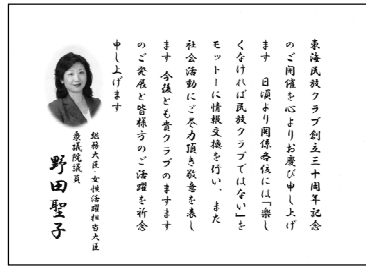 東海民放クラブ創立三十周年記念
のご開催を心よりお慶び申し上げ
ます 日頃より関係各位には「楽し
くなければ民放クラブではない」を
モットーに情報交換を行い、また
社会活動にご尽力頂き敬意を表し
ます 今後とも貴クラブのますます
のご発展と皆様方のご活躍を祈念
申し上げます
総務大臣・女性活躍担当大臣
衆議院議員
野田聖子